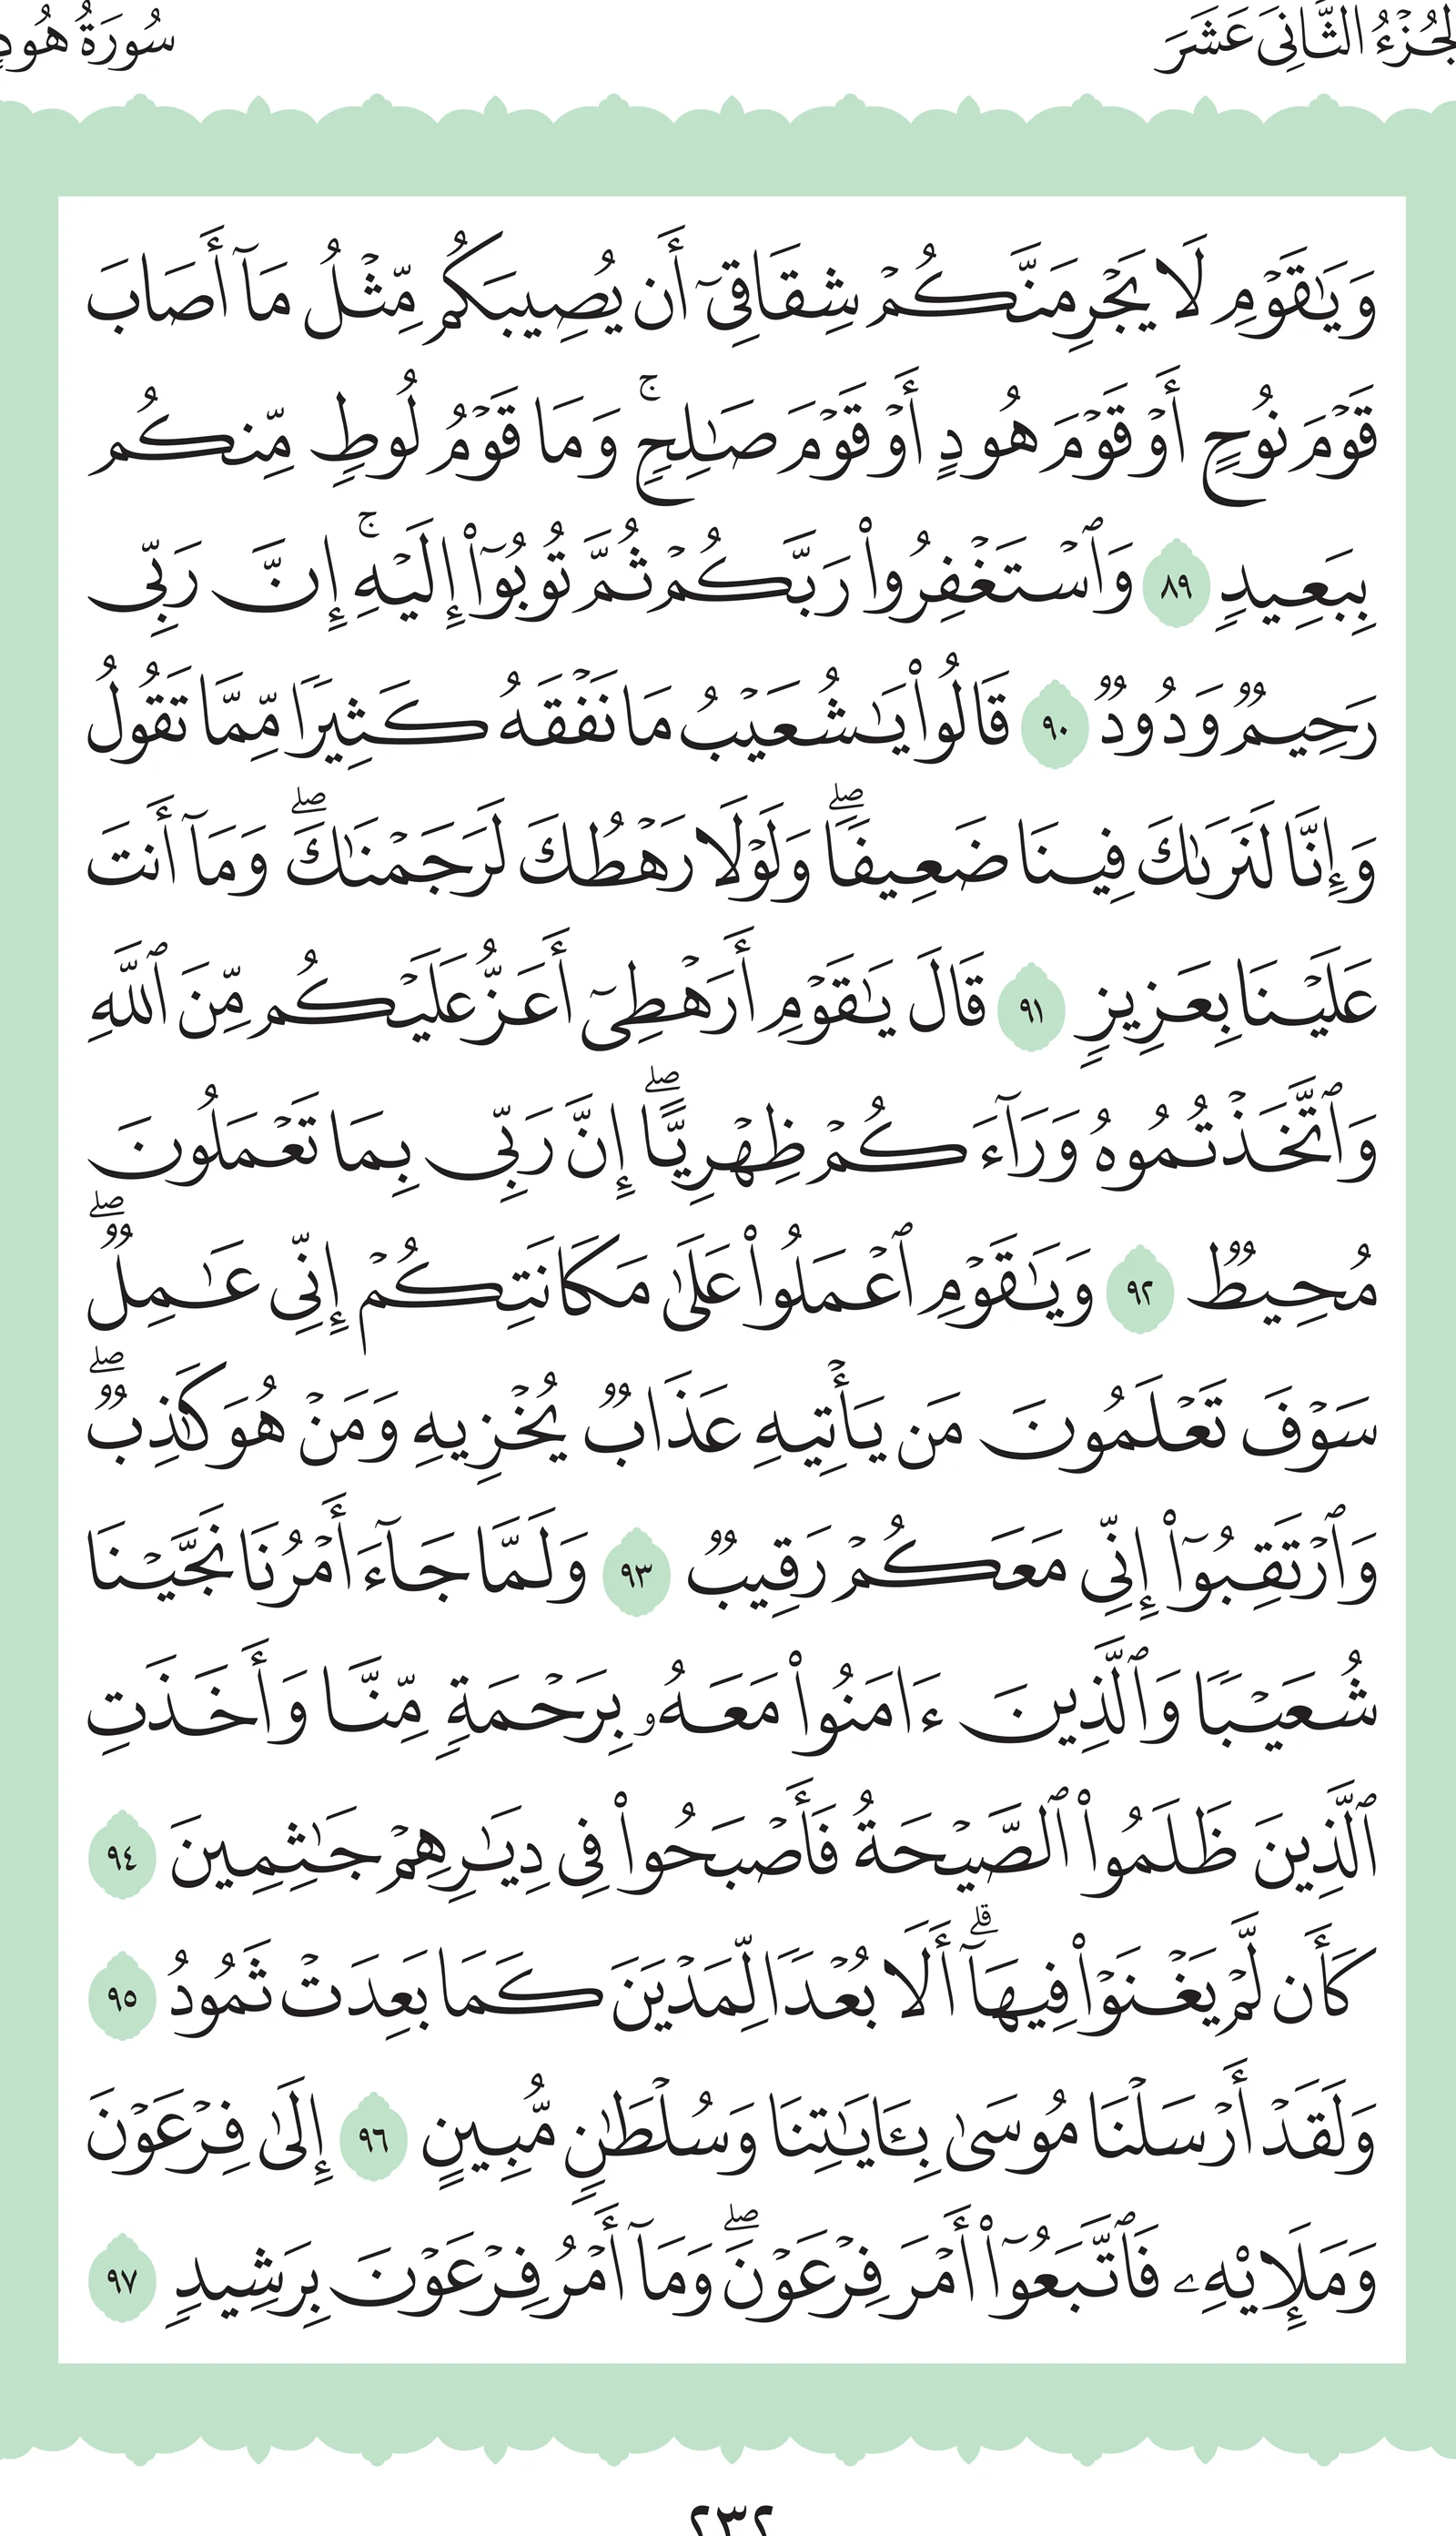 الجُزْءُ الثَّانِيَ عَشَرَ سُورَةُ هُودٍ
وَيَٰقَوْمِ لَا يَجْرِمَنَّكُمْ شِقَاقِىٓ أَن يُصِيبَكُم مِّثْلُ مَآ أَصَابَ
قَوْمَ نُوحٍ أَوْ قَوْمَ هُودٍ أَوْ قَوْمَ صَٰلِحٍ ۚ وَمَا قَوْمُ لُوطٍ مِّنكُم
بِبَعِيدٍ ٨٩ وَٱسْتَغْفِرُوا۟ رَبَّكُمْ ثُمَّ تُوبُوٓا۟ إِلَيْهِ ۚ إِنَّ رَبِّى
رَحِيمٌ وَدُودٌ ٩٠ قَالُوا۟ يَٰشُعَيْبُ مَا نَفْقَهُ كَثِيرًا مِّمَّا تَقُولُ
وَإِنَّا لَنَرَىٰكَ فِينَا ضَعِيفًا ۖ وَلَوْلَا رَهْطُكَ لَرَجَمْنَٰكَ ۖ وَمَآ أَنتَ
عَلَيْنَا بِعَزِيزٍ ٩١ قَالَ يَٰقَوْمِ أَرَهْطِىٓ أَعَزُّ عَلَيْكُم مِّنَ ٱللَّهِ
وَٱتَّخَذْتُمُوهُ وَرَآءَكُمْ ظِهْرِيًّا ۖ إِنَّ رَبِّى بِمَا تَعْمَلُونَ
مُحِيطٌ ٩٢ وَيَٰقَوْمِ ٱعْمَلُوا۟ عَلَىٰ مَكَانَتِكُمْ إِنِّى عَٰمِلٌ ۖ
سَوْفَ تَعْلَمُونَ مَن يَأْتِيهِ عَذَابٌ يُخْزِيهِ وَمَنْ هُوَ كَٰذِبٌ ۖ
وَٱرْتَقِبُوٓا۟ إِنِّى مَعَكُمْ رَقِيبٌ ٩٣ وَلَمَّا جَآءَ أَمْرُنَا نَجَّيْنَا
شُعَيْبًا وَٱلَّذِينَ ءَامَنُوا۟ مَعَهُۥ بِرَحْمَةٍ مِّنَّا وَأَخَذَتِ
ٱلَّذِينَ ظَلَمُوا۟ ٱلصَّيْحَةُ فَأَصْبَحُوا۟ فِى دِيَٰرِهِمْ جَٰثِمِينَ ٩٤
كَأَن لَّمْ يَغْنَوْا۟ فِيهَآ ۗ أَلَا بُعْدًا لِّمَدْيَنَ كَمَا بَعِدَتْ ثَمُودُ ٩٥
وَلَقَدْ أَرْسَلْنَا مُوسَىٰ بِـَٔايَٰتِنَا وَسُلْطَٰنٍ مُّبِينٍ ٩٦ إِلَىٰ فِرْعَوْنَ
وَمَلَإِي۟هِۦ فَٱتَّبَعُوٓا۟ أَمْرَ فِرْعَوْنَ ۖ وَمَآ أَمْرُ فِرْعَوْنَ بِرَشِيدٍ ٩٧
٢٣٢